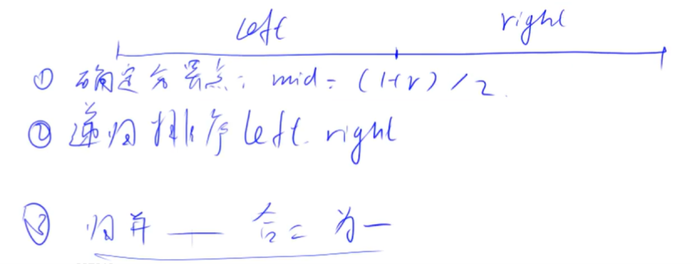 left right
① 确定分界点: mid = (l+r)/2
② 递归排序 left. right
③ 归并 —— 合二为一